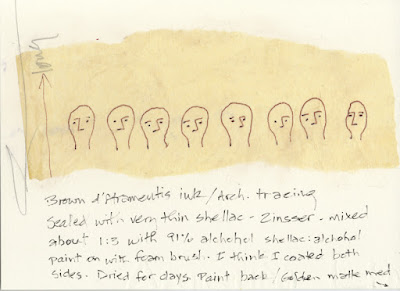 Brown d'Atramentis ink/Arch. tracing
Sealed with very thin shellac - Zinsser - mixed
about 1:5 with 91% alchohol shellac:alchohol
paint on with foam brush. I think I coated both
sides. Dried for days. Paint back/Golden matte med